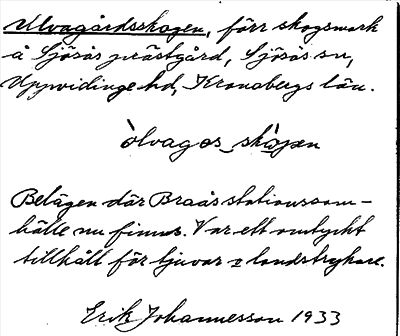 Ulvagårdsskogen, förr skogsmark
å Sjösås prästgård, Sjösås sn,
Uppvidinge hd, Kronobergs län.
òlvagos_skògen
Belägen där Braås stationssam-
hälle nu finnes. Var ett omtyckt
tillhåll för tjuvar o landstrykare.
Erik Johannesson 1933